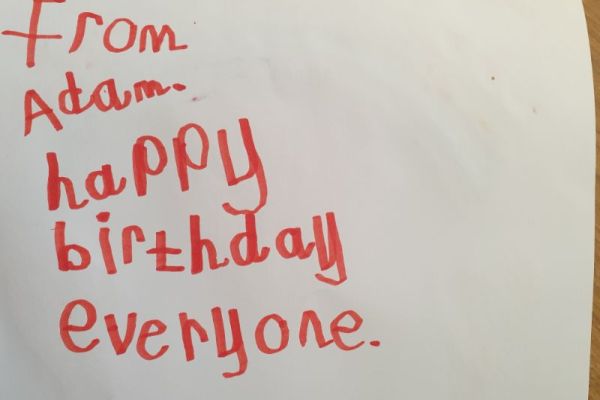 from
Adam.
happy
birthday
everyone.